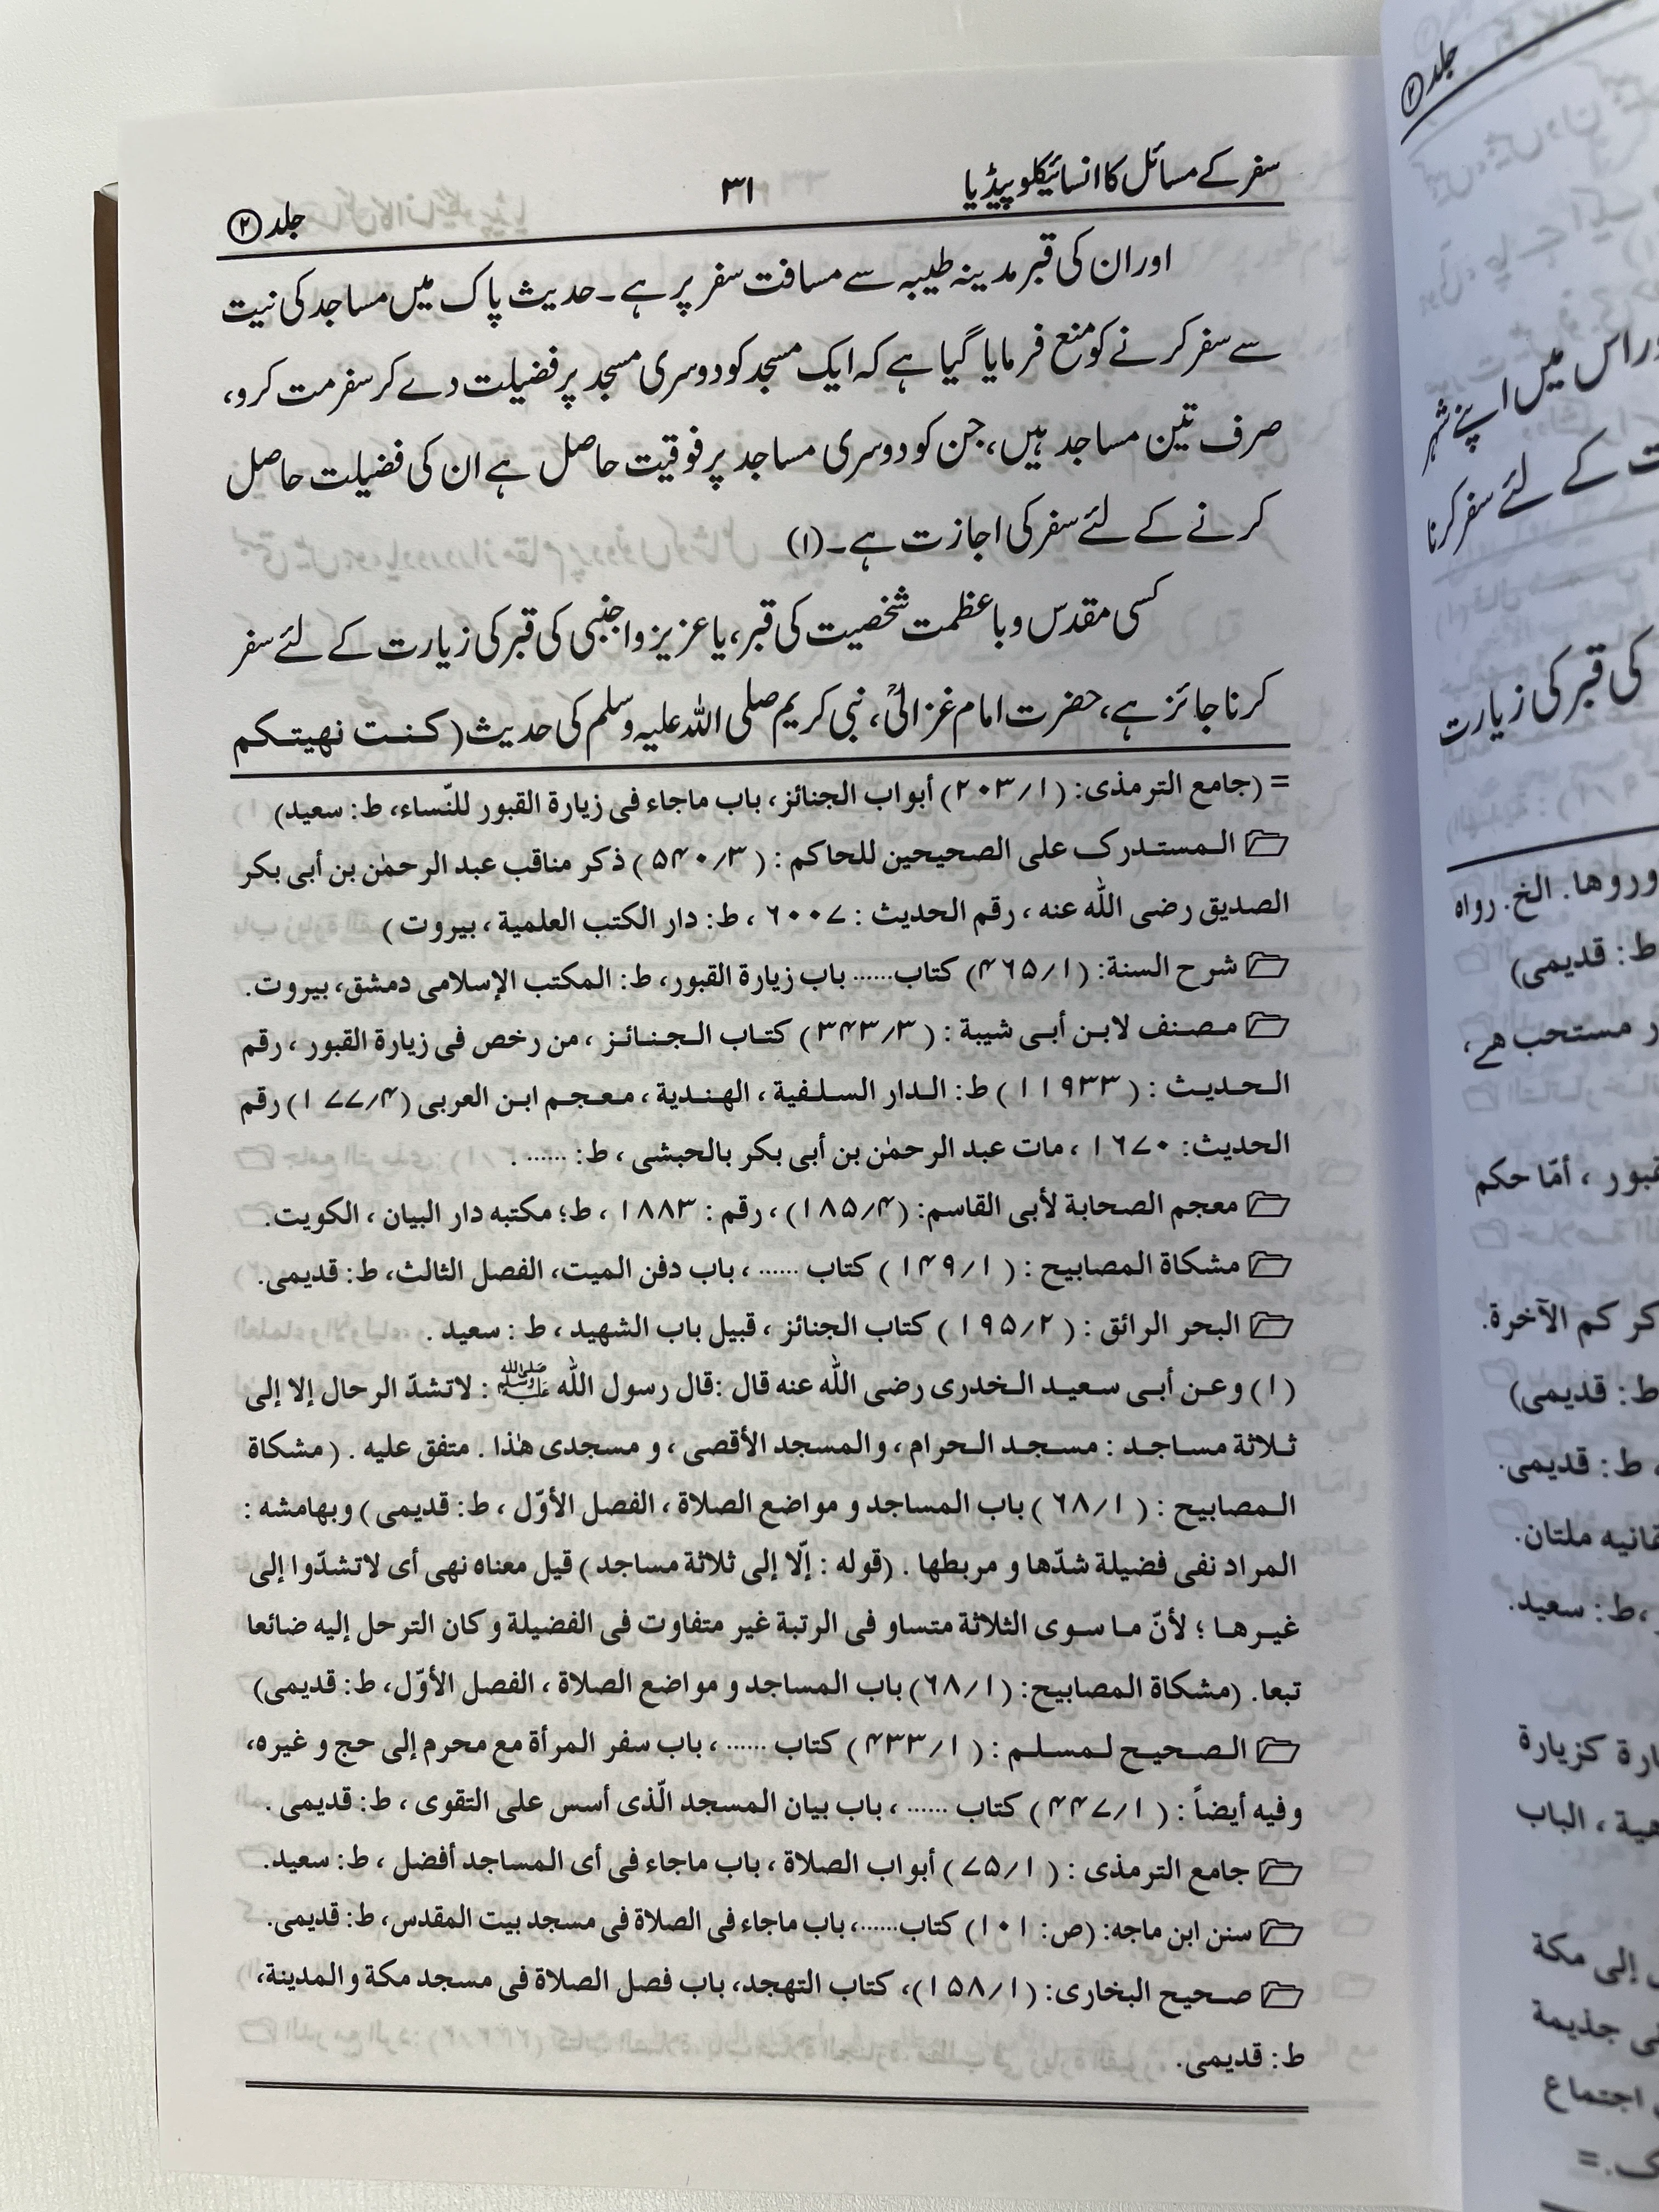 سفر کے مسائل کا انسائیکلوپیڈیا
۳۱
جلد ②
اور ان کی قبر مدینہ طیبہ سے مسافت سفر پر ہے۔ حدیث پاک میں مساجد کی نیت
سے سفر کرنے کو منع فرمایا گیا ہے کہ ایک مسجد کو دوسری مسجد پر فضیلت دے کر سفر مت کرو،
صرف تین مساجد ہیں، جن کو دوسری مساجد پر فوقیت حاصل ہے ان کی فضیلت حاصل
کرنے کے لئے سفر کی اجازت ہے۔(۱)
کسی مقدس و باعظمت شخصیت کی قبر، یا عزیز و اجنبی کی قبر کی زیارت کے لئے سفر
کرنا جائز ہے، حضرت امام غزالیؒ، نبی کریم صلی اللہ علیہ وسلم کی حدیث (كنت نهيتكم
= (جامع الترمذی: (۲۰۳/۱) أبواب الجنائز، باب ماجاء فی زیارة القبور للنّساء، ط: سعید)
المستدرک علی الصحیحین للحاکم : (۵۴۰/۳) ذکر مناقب عبد الرحمٰن بن أبی بکر
الصدیق رضی الله عنه ، رقم الحدیث : ۶۰۰۷ ، ط: دار الکتب العلمیة ، بیروت )
شرح السنة: (۴۶۵/۱) کتاب...... باب زیارة القبور، ط: المکتب الإسلامی دمشق، بیروت.
مصنف لابن أبی شیبة : (۳۴۳/۳) کتاب الجنائز ، من رخص فی زیارة القبور ، رقم
الحدیث : (۱۱۹۳۳) ط: الدار السلفیة ، الهندیة ، معجم ابن العربی (۱۷۷/۴) رقم
الحدیث: ۱۶۷۰ ، مات عبد الرحمٰن بن أبی بکر بالحبشی ، ط: ...... .
معجم الصحابة لأبی القاسم: (۱۸۵/۴) ، رقم : ۱۸۸۳ ، ط؛ مکتبه دار البیان ، الکویت.
مشکاة المصابیح : (۱۴۹/۱) کتاب ...... ، باب دفن المیت، الفصل الثالث، ط: قدیمی.
البحر الرائق : (۱۹۵/۲) کتاب الجنائز ، قبیل باب الشهید ، ط : سعید .
(۱) وعن أبی سعید الخدری رضی الله عنه قال :قال رسول الله ﷺ : لاتشدّ الرحال إلا إلی
ثلاثة مساجد : مسجد الحرام ، والمسجد الأقصی ، و مسجدی هٰذا . متفق علیه . (مشکاة
المصابیح : (۶۸/۱) باب المساجد و مواضع الصلاة ، الفصل الأوّل ، ط: قدیمی) وبهامشه :
المراد نفی فضیلة شدّها و مربطها . (قوله : إلّا إلی ثلاثة مساجد ) قیل معناه نهی أی لاتشدّوا إلی
غیرها ؛ لأنّ ما سوی الثلاثة متساو فی الرتبة غیر متفاوت فی الفضیلة و کان الترحل إلیه ضائعا
تبعا. (مشکاة المصابیح: (۶۸/۱) باب المساجد و مواضع الصلاة ، الفصل الأوّل، ط: قدیمی)
الصحیح لمسلم : (۴۳۳/۱) کتاب ...... ، باب سفر المرأة مع محرم إلی حج و غیره،
وفیه أیضاً : (۴۴۷/۱) کتاب ...... ، باب بیان المسجد الّذی أسس علی التقوی ، ط: قدیمی .
جامع الترمذی : (۷۵/۱) أبواب الصلاة ، باب ماجاء فی أی المساجد أفضل ، ط: سعید.
سنن ابن ماجه: (ص: ۱۰۱) کتاب......، باب ماجاء فی الصلاة فی مسجد بیت المقدس، ط: قدیمی.
صحیح البخاری: (۱۵۸/۱)، کتاب التهجد، باب فصل الصلاة فی مسجد مکة والمدینة،
ط: قدیمی.
جلد ②
وراس میں اپنے شہر
ت کے لئے سفر کرنا
کی قبر کی زیارت
وروها. الخ. رواه
ط: قدیمی)
ر مستحب هے،
قبور ، أمّا حکم
کر کم الآخرة.
ط: قدیمی)
، ط: قدیمی.
قانیه ملتان.
، ط: سعید.
ارة کزیارة
هیة ، الباب
إلی مکة
ی جذیمة
اجتماع
ک.=